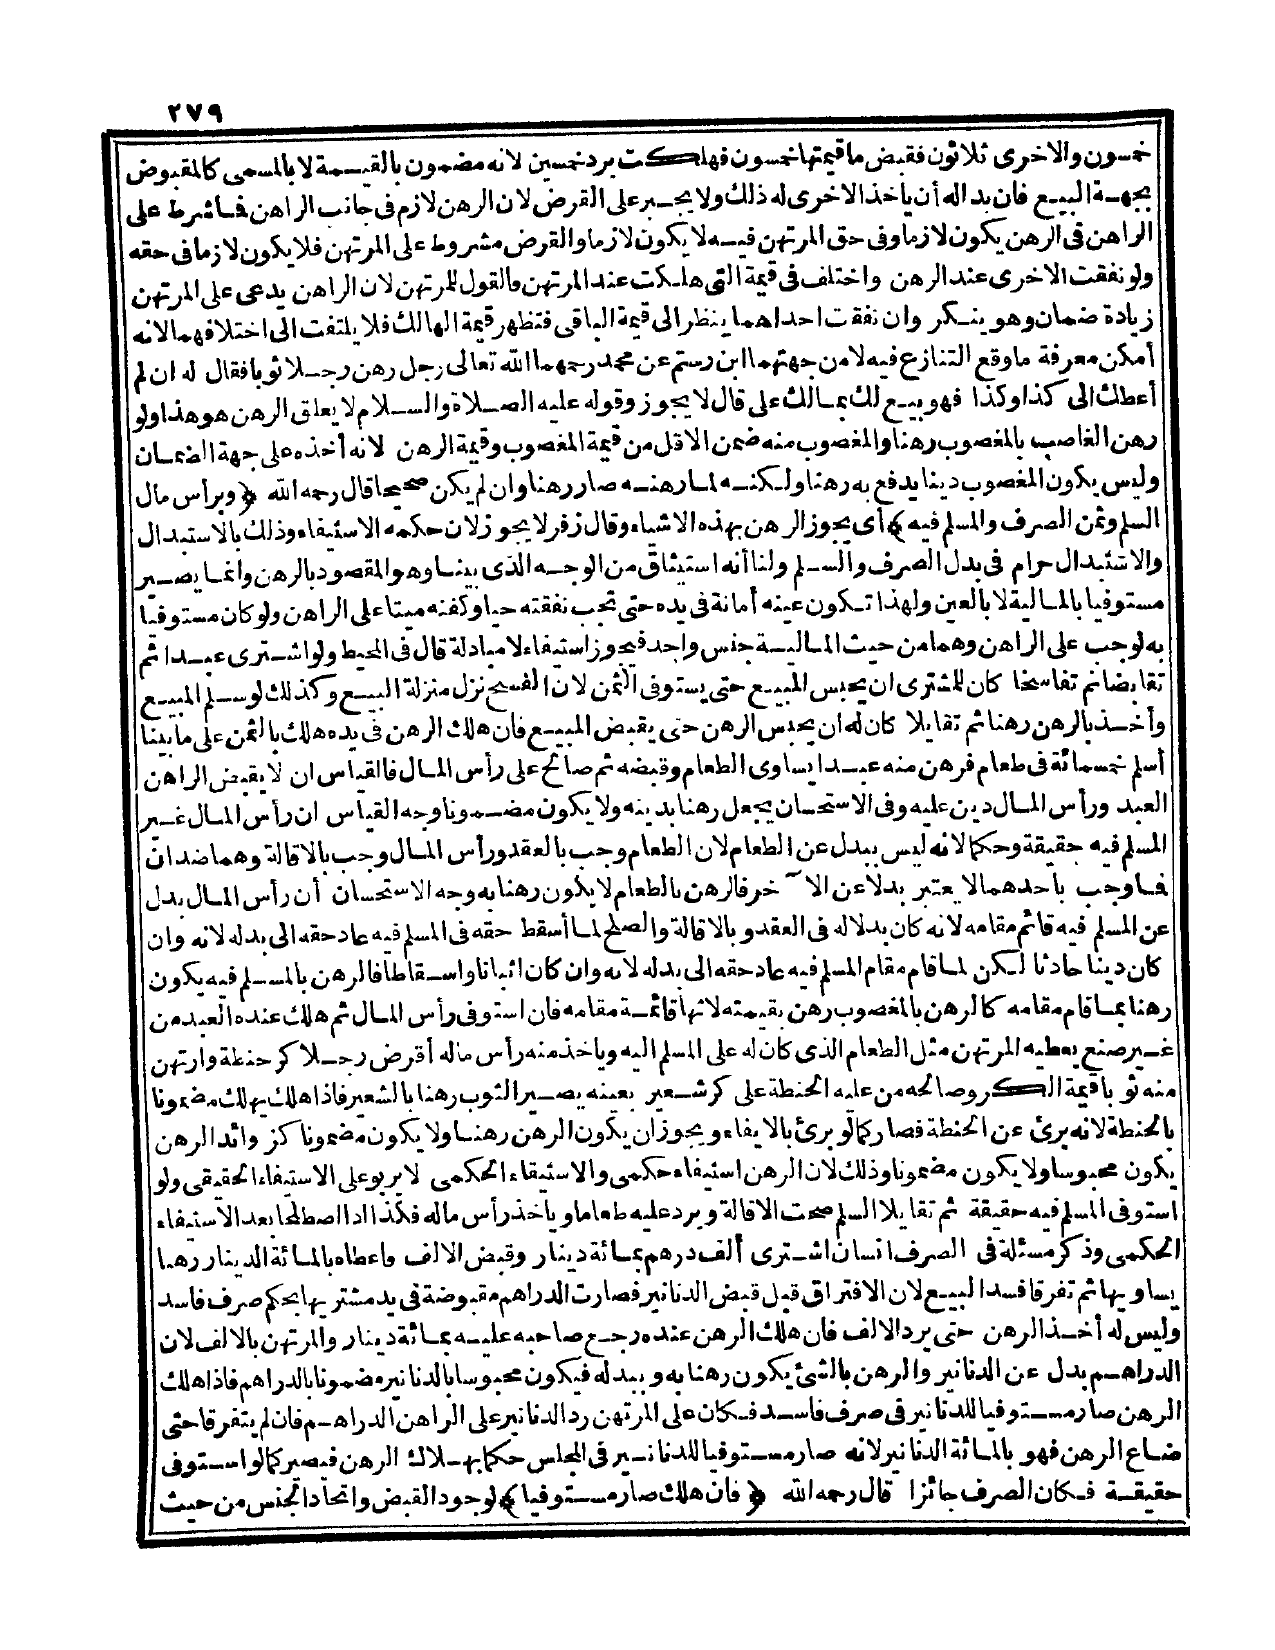 ٢٧٩
خمسون والاخرى ثلاثون فقبض ما قيمتها خمسون فهلكت يرد خمسين لانه مضمون بالقيمة لا بالمسمى كالمقبوض
بجهة البيع فان بداله أن يأخذ الاخرى له ذلك ولا يجبر على القرض لان الرهن لازم فى جانب الراهن فما شرط على
الراهن فى الرهن يكون لازما وفى حق المرتهن فيه لا يكون لازما والقرض مشروط على المرتهن فلا يكون لازما فى حقه
ولو نفقت الاخرى عند الرهن واختلف فى قيمة التى هلكت عند المرتهن فالقول للمرتهن لان الراهن يدعى على المرتهن
زيادة ضمان وهو ينكر وان نفقت احداهما ينظر الى قيمة الباقى فتظهر قيمة الهالك فلا يلتفت الى اختلافهما لانه
أمكن معرفة ما وقع التنازع فيه لا من جهتهما ابن رستم عن محمد رحمهما الله تعالى رجل رهن رجلا ثوبا فقال له ان لم
أعطك الى كذا وكذا فهو بيع لك بمالك على قال لا يجوز وقوله عليه الصلاة والسلام لا يعلق الرهن هو هذا ولو
رهن الغاصب بالمغصوب رهنا والمغصوب منه ضمن الاقل من قيمة المغصوب وقيمة الرهن لانه أخذه على جهة الضمان
وليس يكون المغصوب دينا يدفع به رهنا ولكنه لما رهنه صار رهنا وان لم يكن صحيحا قال رحمه الله ﴿وبرأس مال
السلم وثمن الصرف والمسلم فيه﴾ أى يجوز الرهن بهذه الاشياء وقال زفر لا يجوز لان حكمه الاستيفاء وذلك بالاستبدال
والاستبدال حرام فى بدل الصرف والسلم ولنا أنه استيثاق من الوجه الذى بينا وهو المقصود بالرهن وانما يصير
مستوفيا بالمالية لا بالعين ولهذا تكون عينه أمانة فى يده حتى تجب نفقته حيا وكفنه ميتا على الراهن ولو كان مستوفيا
به لوجب على الراهن وهما من حيث المالية جنس واحد فيجوز استيفاء لا مبادلة قال فى المحيط ولو اشترى عبدا ثم
تقابضا ثم تفاسخا كان للمشترى ان يحبس المبيع حتى يستوفى الثمن لان الفسخ نزل منزلة البيع وكذلك لو سلم المبيع
وأخذ بالرهن رهنا ثم تقايلا كان له ان يحبس الرهن حتى يقبض المبيع فان هلك الرهن فى يده هلك بالثمن على ما بينا
أسلم خمسمائة فى طعام فرهن منه عبدا يساوى الطعام وقبضه ثم صالح على رأس المال فالقياس ان لا يقبض الراهن
العبد ورأس المال دين عليه وفى الاستحسان يجعل رهنا بدينه ولا يكون مضمونا وجه القياس ان رأس المال غير
المسلم فيه حقيقة وحكما لانه ليس ببدل عن الطعام لان الطعام وجب بالعقد ورأس المال وجب بالاقالة وهما ضدان
فما وجب باحدهما لا يعتبر بدلا عن الآخر فالرهن بالطعام لا يكون رهنا به وجه الاستحسان أن رأس المال بدل
عن المسلم فيه قائم مقامه لانه كان بدلا له فى العقد وبالاقالة والصلح لما أسقط حقه فى المسلم فيه عاد حقه الى بدله لانه وان
كان دينا حادثا لكن لما قام مقام المسلم فيه عاد حقه الى بدله لانه وان كان اثباتا واسقاطا فالرهن بالمسلم فيه يكون
رهنا بما قام مقامه كالرهن بالمغصوب رهن بقيمته لانها قائمة مقامه فان استوفى رأس المال ثم هلك عنده العبد من
غير صنع يعطيه المرتهن مثل الطعام الذى كان له على المسلم اليه ويأخذ منه رأس ماله أقرض رجلا كر حنطة وارتهن
منه ثوبا قيمة الكر وصالحه من عليه الحنطة على كر شعير بعينه يصير الثوب رهنا بالشعير فاذا هلك يهلك مضمونا
بالحنطة لانه برئ عن الحنطة فصار كما لو برئ بالايفاء ويجوز ان يكون الرهن رهنا ولا يكون مضمونا كزوائد الرهن
يكون محبوسا ولا يكون مضمونا وذلك لان الرهن استيفاء حكمى والاستيفاء الحكمى لا يربو على الاستيفاء الحقيقى ولو
استوفى المسلم فيه حقيقة ثم تقايلا السلم صحت الاقالة ويرد عليه طعاما ويأخذ رأس ماله فكذا اذا اصطلحا بعد الاستيفاء
الحكمى وذكر مسئلة فى الصرف انسان اشترى ألف درهم بمائة دينار وقبض الالف فاعطاه بالمائة الدينار رهنا
يساويها ثم تفرقا فسد البيع لان الافتراق قبل قبض الدنانير فصارت الدراهم مقبوضة فى يد مشتريها بحكم صرف فاسد
وليس له أخذ الرهن حتى يرد الالف فان هلك الرهن عنده رجع صاحبه عليه بمائة دينار والمرتهن بالالف لان
الدراهم بدل عن الدنانير والرهن بالشئ يكون رهنا به وببدله فيكون محبوسا بالدنانير مضمونا بالدراهم فاذا هلك
الرهن صار مستوفيا للدنانير فى صرف فاسد فكان على المرتهن رد الدنانير على الراهن الدراهم فان لم يتفرقا حتى
ضاع الرهن فهو بالمائة الدنانير لانه صار مستوفيا للدنانير فى المجلس حكما بهلاك الرهن فيصير كما لو استوفى
حقيقة فكان الصرف جائزا قال رحمه الله ﴿فان هلك صار مستوفيا﴾ لوجود القبض واتحاد الجنس من حيث